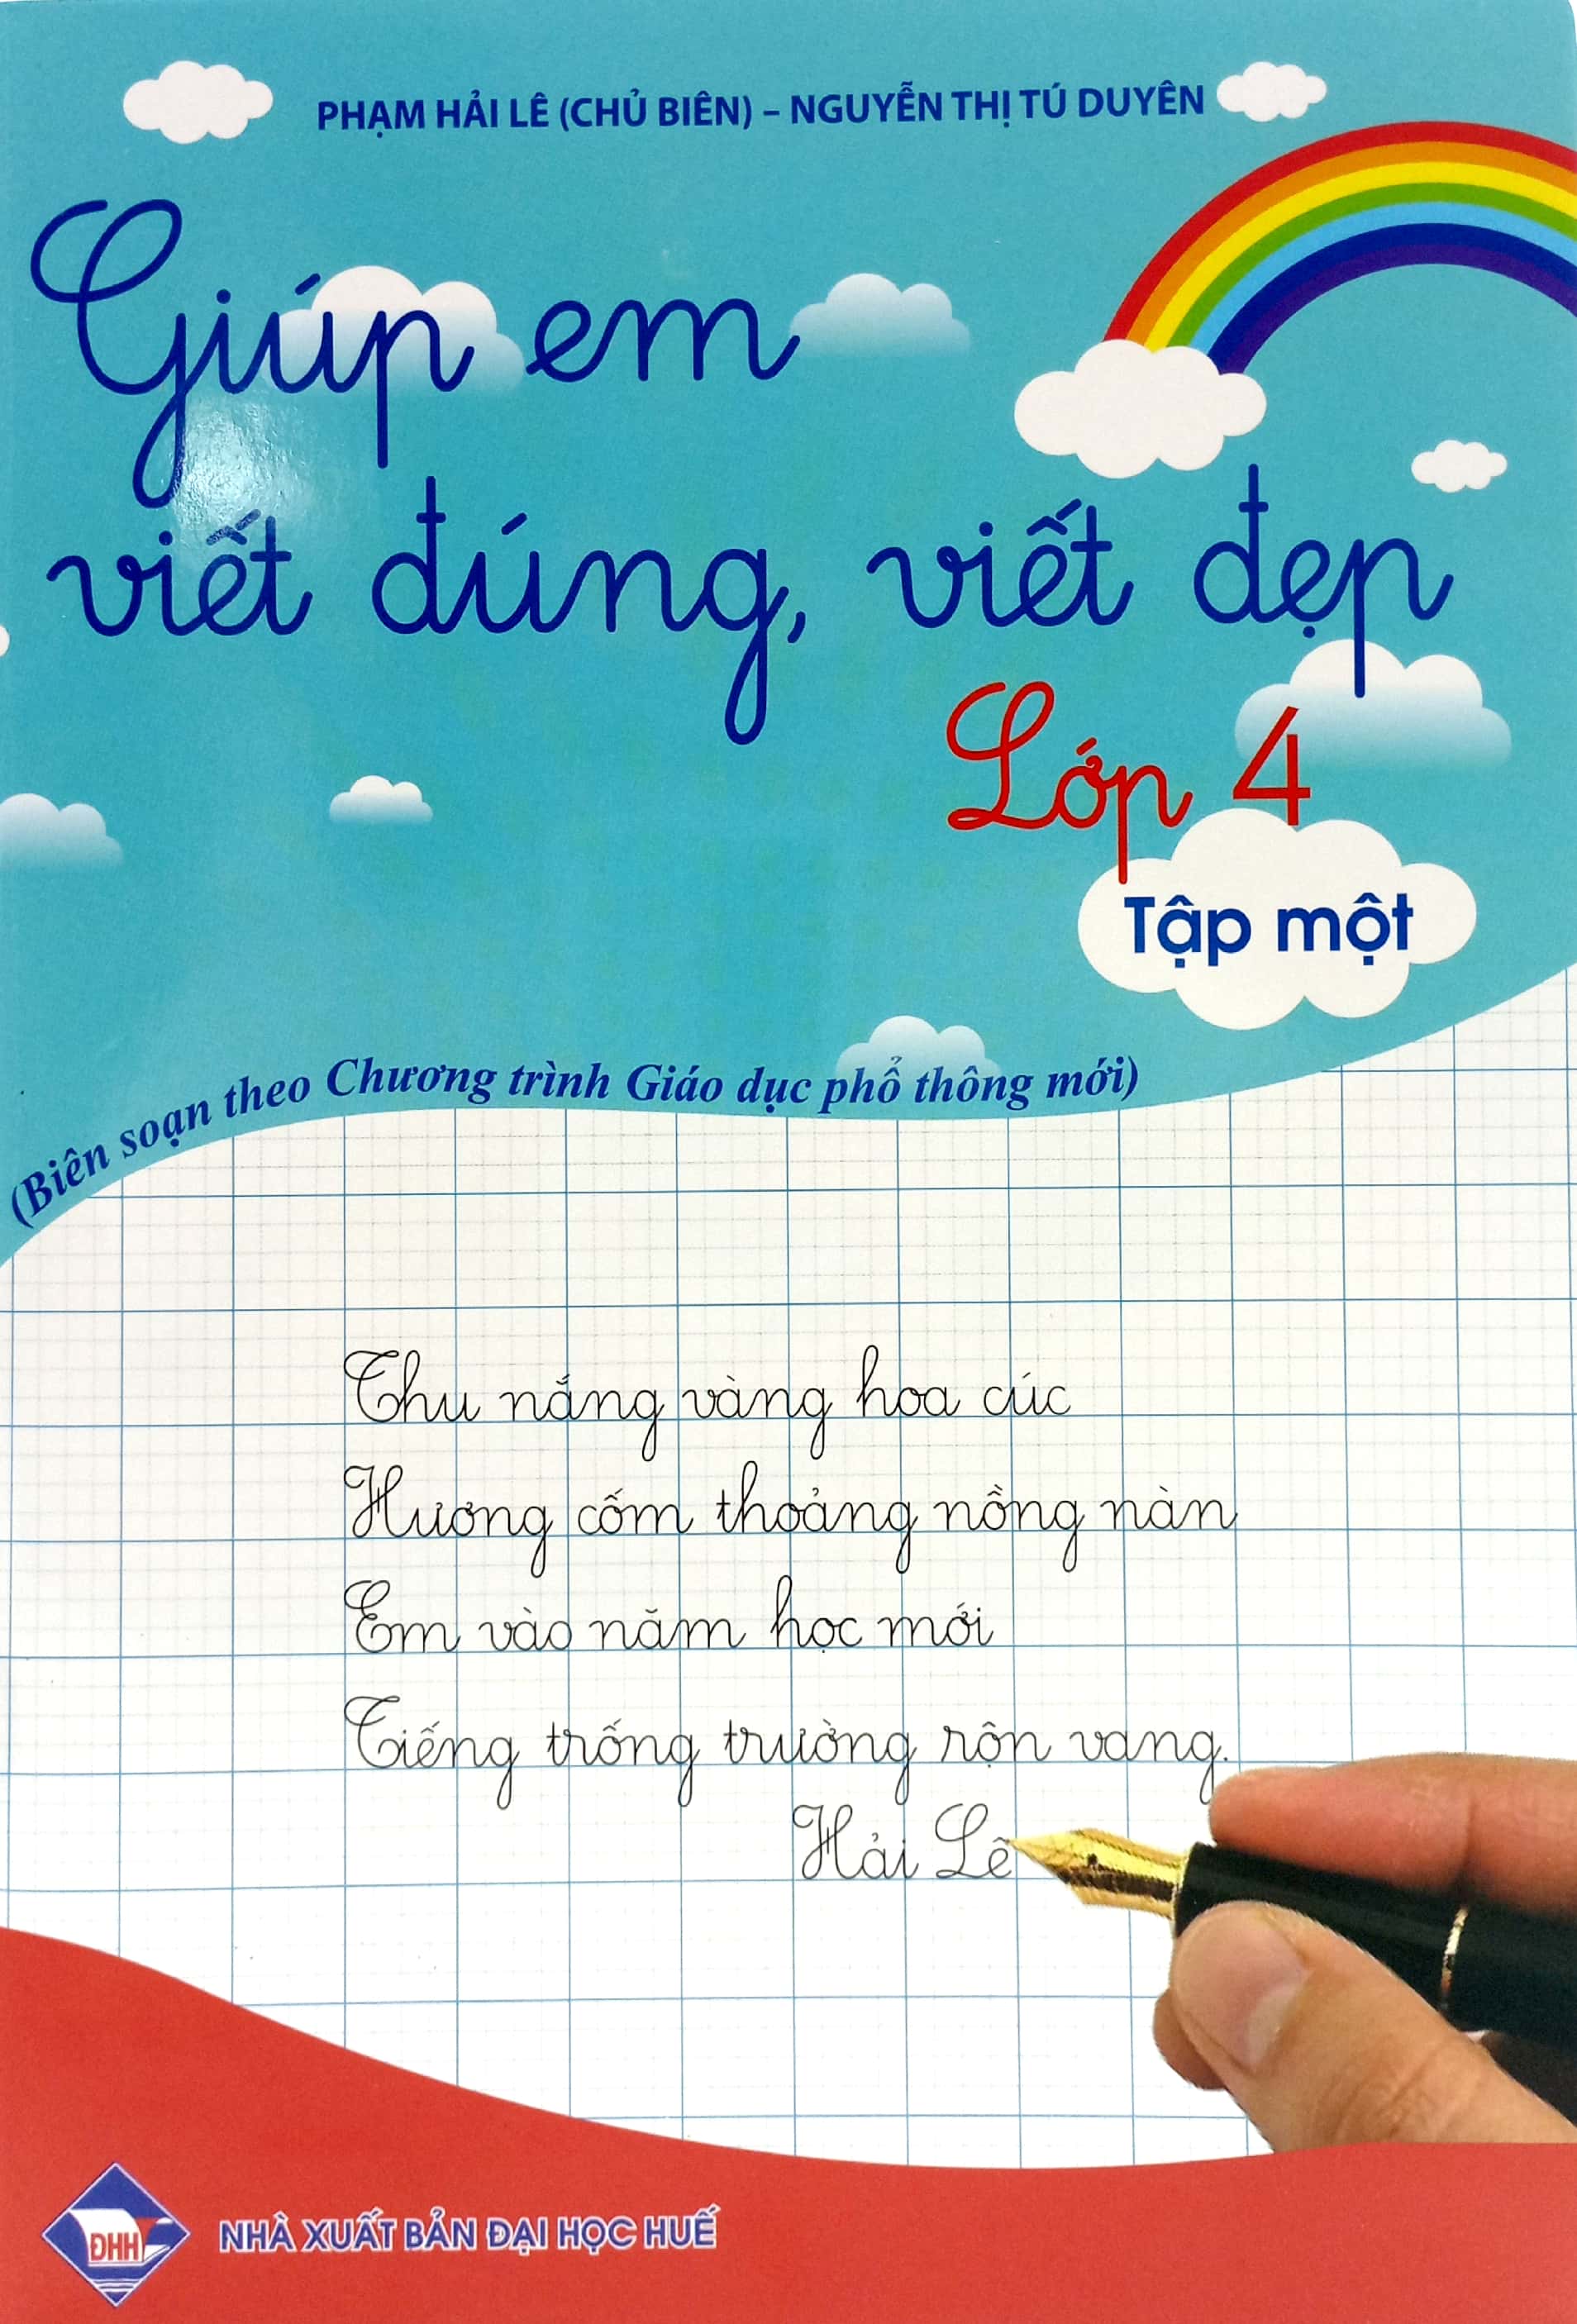 PHẠM HẢI LÊ (CHỦ BIÊN) – NGUYỄN THỊ TÚ DUYÊN
Giúp em
viết đúng, viết đẹp
Lớp 4
Tập một
(Biên soạn theo Chương trình Giáo dục phổ thông mới)
Thu nắng vàng hoa cúc
Hương cốm thoảng nồng nàn
Em vào năm học mới
Tiếng trống trường rộn vang.
Hải Lê
ĐHH
NHÀ XUẤT BẢN ĐẠI HỌC HUẾ